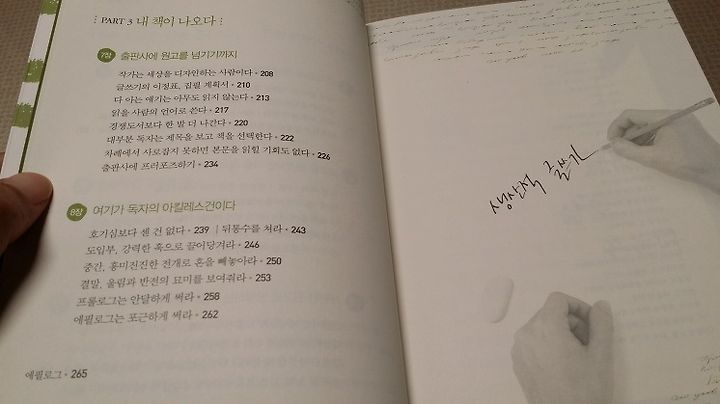 PART 3 내 책이 나오다
7장 출판사에 원고를 넘기기까지
작가는 세상을 디자인하는 사람이다 • 208
글쓰기의 이정표, 집필 계획서 • 210
다 아는 얘기는 아무도 읽지 않는다 • 213
읽을 사람의 언어로 쓴다 • 217
경쟁도서보다 한 발 더 나간다 • 220
대부분 독자는 제목을 보고 책을 선택한다 • 222
차례에서 사로잡지 못하면 본문을 읽힐 기회도 없다 • 226
출판사에 프러포즈하기 • 234
8장 여기가 독자의 아킬레스건이다
호기심보다 센 건 없다 • 239 | 뒤통수를 쳐라 • 243
도입부, 강력한 훅으로 끌어당겨라 • 246
중간, 흥미진진한 전개로 혼을 빼놓아라 • 250
결말, 울림과 반전의 묘미를 보여줘라 • 253
프롤로그는 안달하게 써라 • 258
에필로그는 포근하게 써라 • 262
에필로그 • 265
생산적 글쓰기